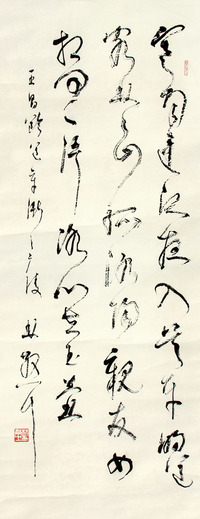 寒雨連江夜入吳平明送
客楚山孤洛陽親友如
相問一片冰心在玉壺
王昌齡送辛漸之廣陵 林散耳